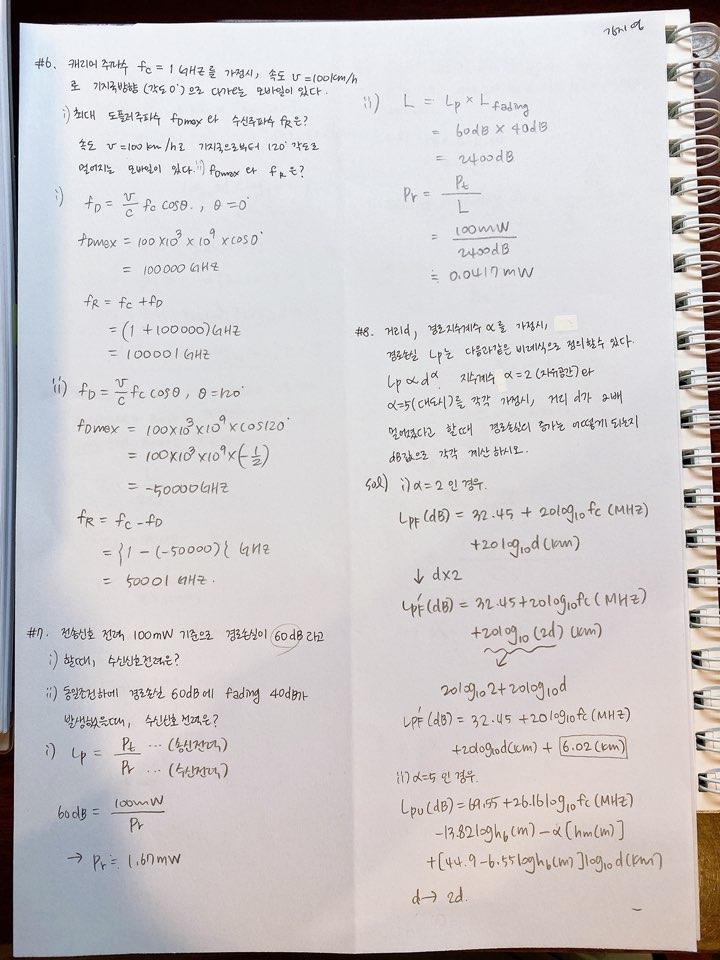 김지영
#6. 캐리어 주파수 fc = 1 GHz를 가정시, 속도 v = 100km/h
로 기지국방향 (각도 0°)으로 다가는 모바일이 있다.
i) 최대 도플러주파수 fDmax 와 수신주파수 fR은?
속도 v = 100 km/h로 기지국으로부터 120° 각도로
멀어지는 모바일이 있다. ii) fDmax 와 fR 은?
i) fD = v/c fc cosθ. , θ = 0°
fDmax = 100×10³ × 10⁹ × cos0°
= 100000 GHz
fR = fc + fD
= (1 + 100000) GHz
= 100001 GHz
ii) fD = v/c fc cosθ , θ = 120°
fDmax = 100×10³×10⁹×cos120°
= 100×10³×10⁹×(-1/2)
= -50000 GHz
fR = fc - fD
= {1 - (-50000)} GHz
= 50001 GHz.
#7. 전송신호 전력 100mW 기준으로 경로손실이 60dB 라고
i) 할때, 수신신호전력은?
ii) 동일조건하에 경로손실 60dB에 fading 40dB가
발생했을때, 수신신호 전력은?
i) Lp = Pt/Pr ··· (송신전력) ··· (수신전력)
60dB = 100mW/Pr
→ Pr ≒ 1.67mW
ii) L = Lp × Lfading
= 60dB × 40dB
= 2400dB
Pr = Pt/L
= 100mW/2400dB
≒ 0.0417mW
#8. 거리d, 경로지수계수 α를 가정시,
경로손실 Lp는 다음과같은 비례식으로 정의할수 있다.
Lp ∝ d^α. 지수계수 α=2 (자유공간) 와
α=5 (대도시)를 각각 가정시, 거리 d가 2배
멀어졌다고 할때 경로손실의 증가는 어떻게 되는지
dB값으로 각각 계산 하시오.
sol) i) α=2 인 경우.
LpF (dB) = 32.45 + 20log₁₀fc (MHz)
+20log₁₀d (km)
↓ d×2
LpF' (dB) = 32.45+20log₁₀fc (MHz)
+20log₁₀(2d) (km)
20log₁₀2+20log₁₀d
LpF' (dB) = 32.45 + 20log₁₀fc (MHz)
+20log₁₀d(km) + 6.02(km)
ii) α=5 인 경우.
Lpu (dB) = 69.55 + 26.16log₁₀fc (MHz)
-13.82loghb(m) - α[hm(m)]
+[44.9-6.55loghb(m)]log₁₀d(km)
d → 2d.